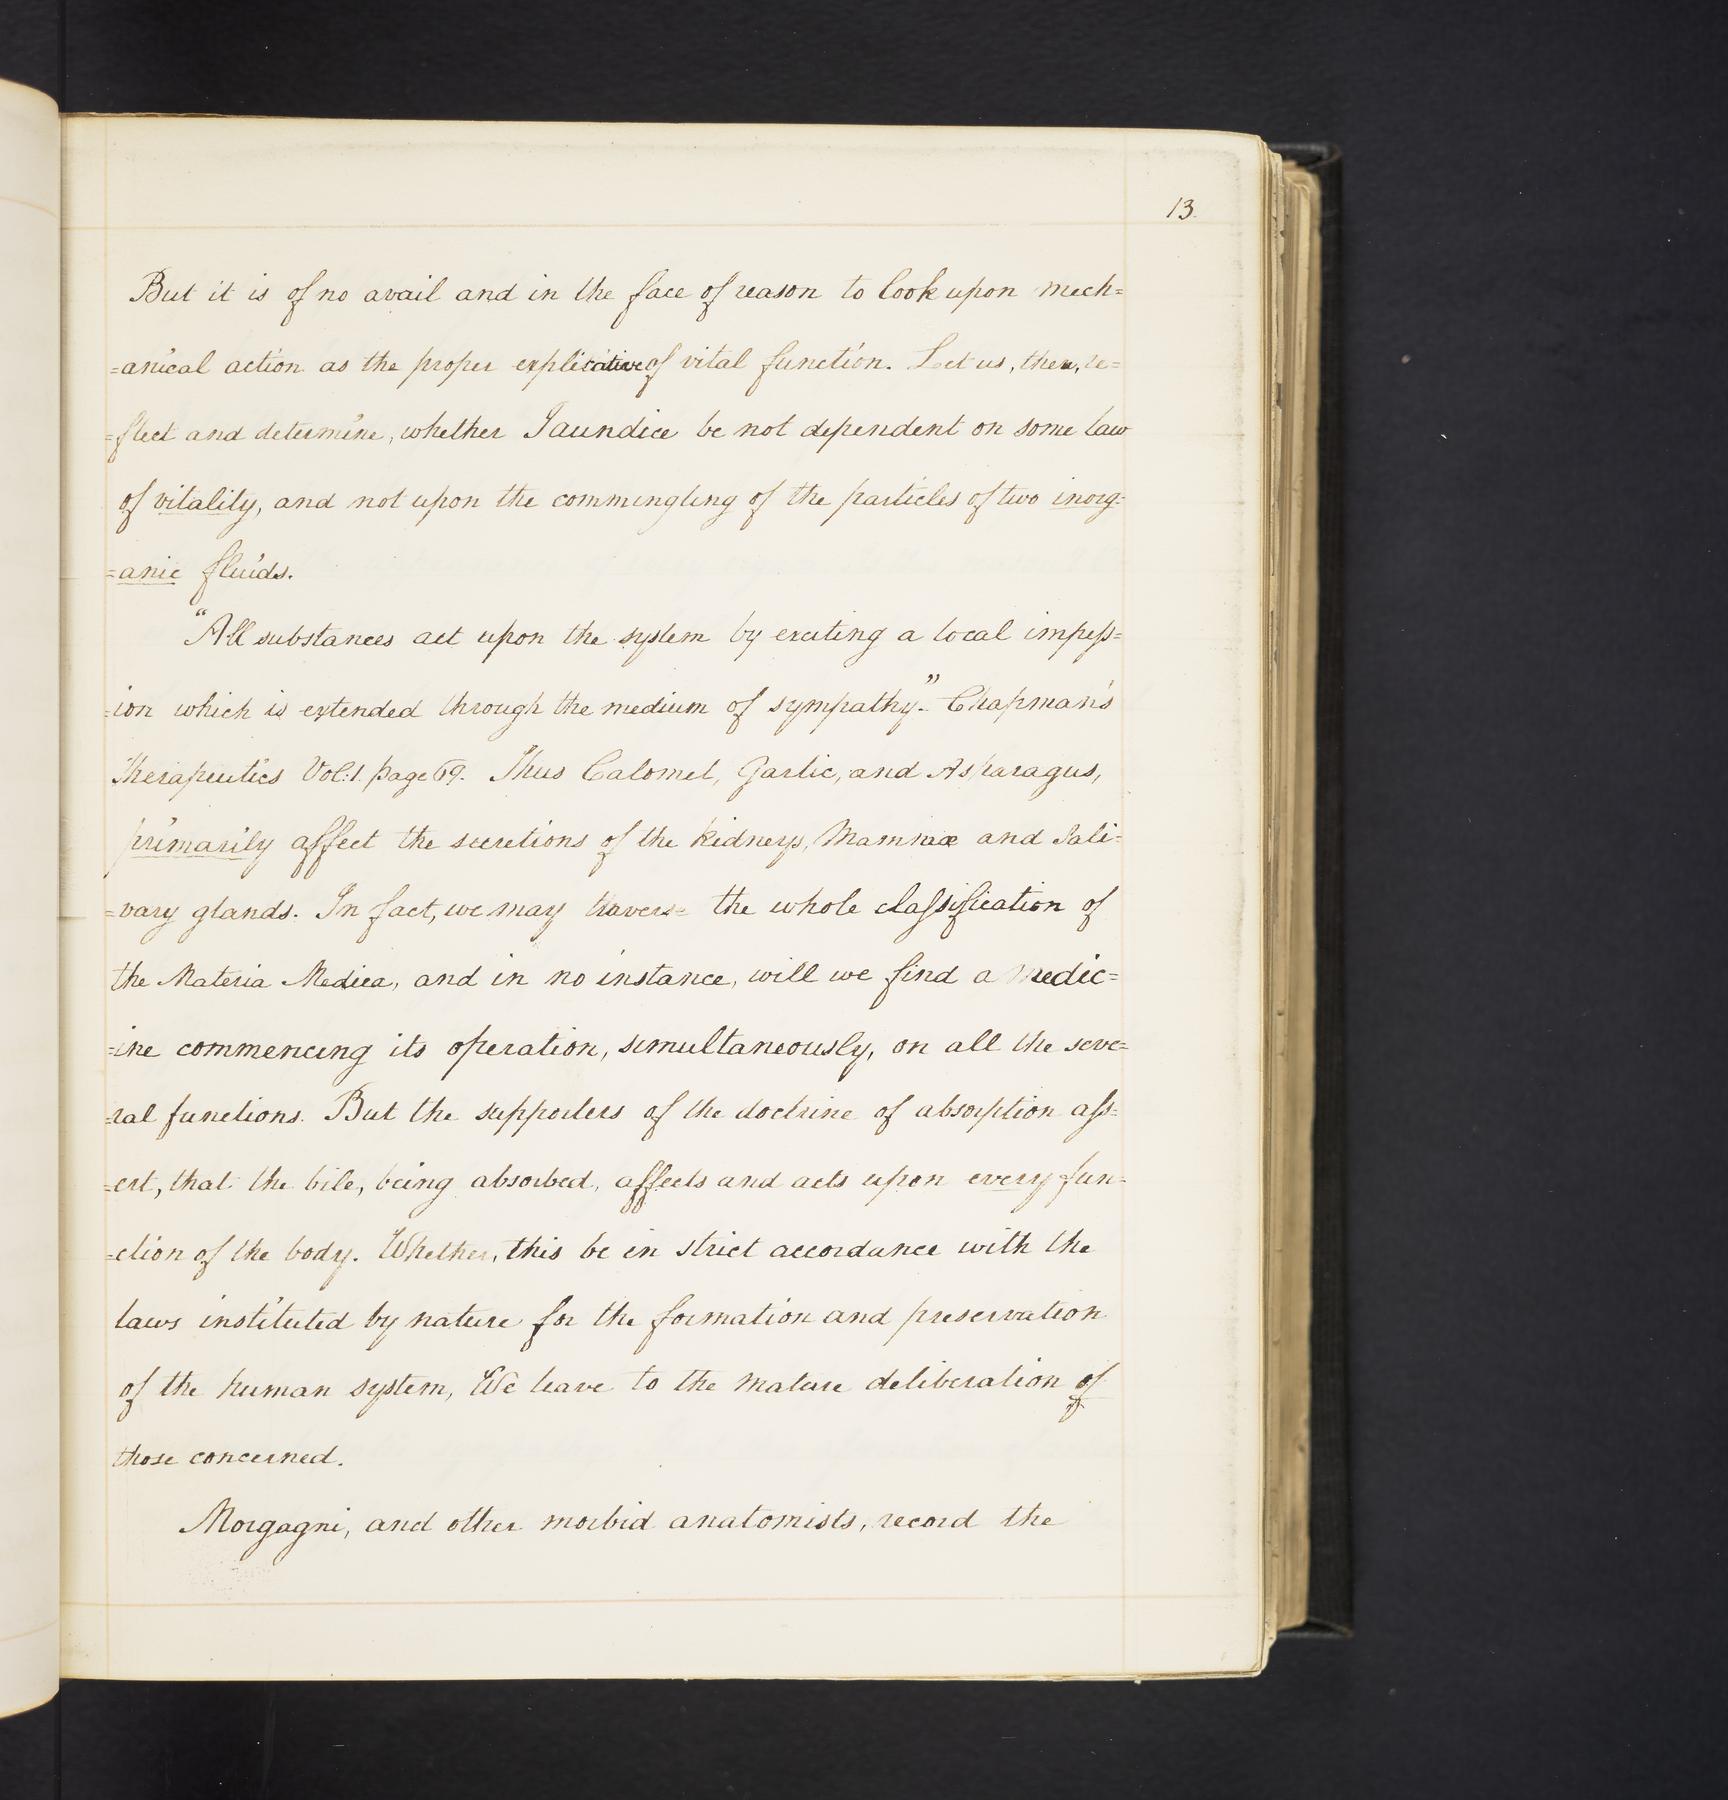 13.
But it is of no avail and in the face of reason to look upon mech=
=anical action as the proper explicative of vital function. Let us, then, re=
=flect and determine, whether Jaundice be not dependent on some law
of vitality, and not upon the commingling of the particles of two inorg=
=anic fluids.
"All substances act upon the system by exciting a local impess=
=ion which is extended through the medium of sympathy." Chapman's
Therapeutics Vol:1. page 69. Thus Calomel, Garlic, and Asparagus,
primarily affect the secretions of the kidneys, Mammæ and Sali=
=vary glands. In fact, we may travers= the whole classification of
the Materia Medica, and in no instance, will we find a Medic=
=ine commencing its operation, simultaneously, on all the seve=
=ral functions. But the supporters of the doctrine of absorption ass=
=ert, that the bile, being absorbed, affects and acts upon every fun=
=ction of the body. Whether, this be in strict accordance with the
laws instituted by nature for the formation and preservation
of the human system, We leave to the mature deliberation of
those concerned.
Morgagni, and other morbid anatomists, record the